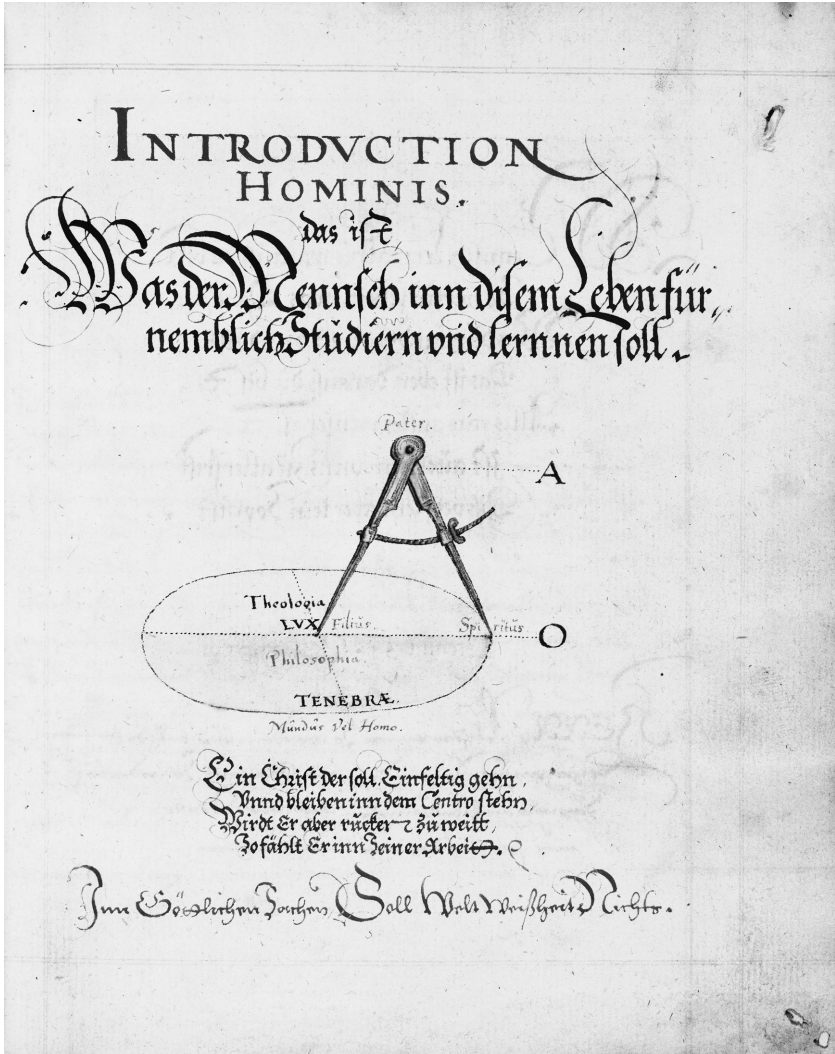 INTRODVCTION
HOMINIS.
das ist,
Was der Mennsch inn disem Leben für,,
nemblich Studiern vnd lernnen soll.
Pater.
A
Theologia
LVX Filius. Spiritus. O
Philosophia.
TENEBRÆ.
Mundus Vel Homo.
Ein Christ der soll Einfeltig gehn,
Vnnd bleiben inn dem Centro stehn,
Wirdt Er aber rucker zu weitt,
So fählt Er inn Seiner Arbeitt.
Inn Göttlichen Sachen, Soll Welt Weißheit Nichts.